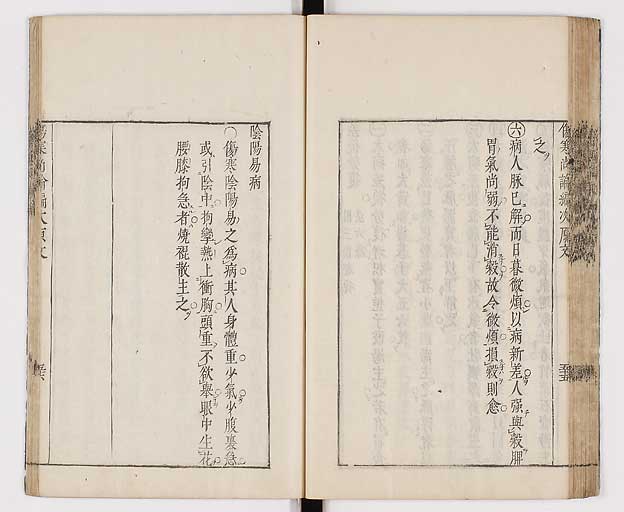 之
㊅病人脉已解而日暮微煩以病新差人强與穀脾
胃氣尚弱不能消穀故令微煩損穀則愈
陰陽易病
〇傷寒陰陽易之爲病其人身體重少氣少腹裏急
或引陰中拘攣熱上衝胸頭重不欲舉眼中生花
腰膝拘急者燒裩散主之